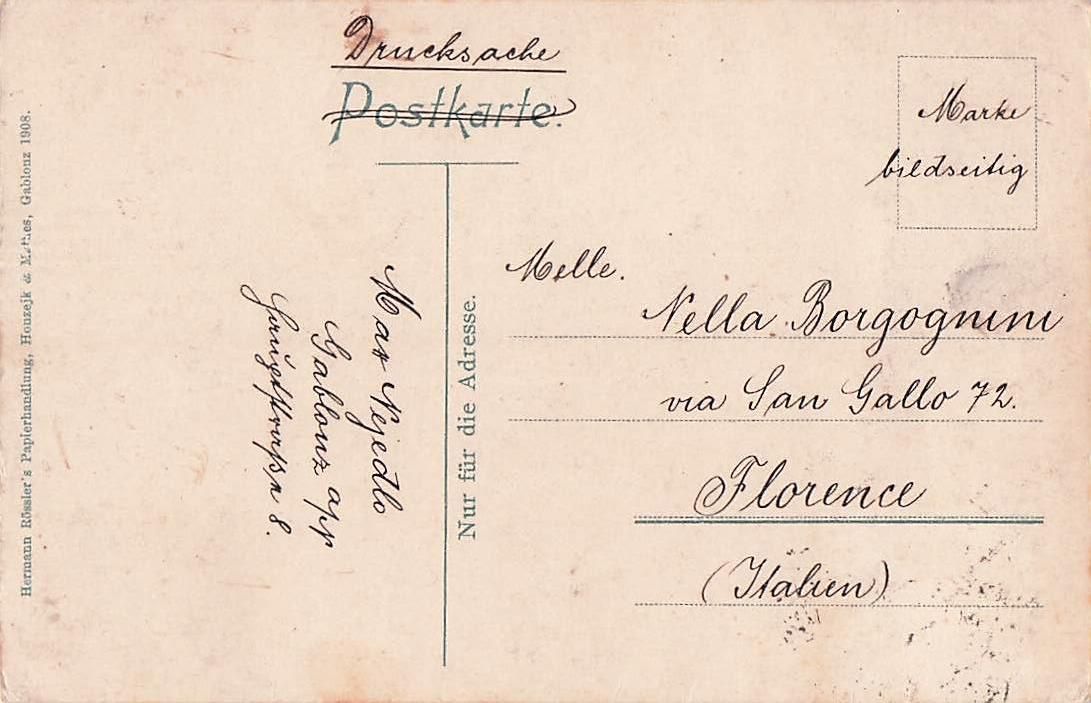 Drucksache
Postkarte.
Marke
bildseitig
Melle.
Nella Borgognini
via San Gallo 72.
Florence
(Italien)
Nur für die Adresse.
Max Nejedlo
Gablonz a/N
Hauptstrasse 8.
Hermann Rössler's Papierhandlung, Honzejk & Mathes, Gablonz 1908.